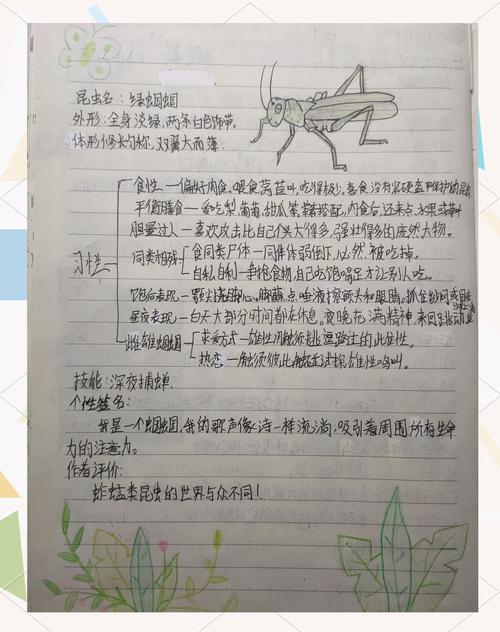 昆虫名：绿蝈蝈
外形：全身淡绿，两条白色饰带，
体形修长匀称，双翼大而薄。
习性
食性—偏好肉食，喂食莴苣叶，吃得极少，喜食没有坚硬盔甲保护的昆虫
平衡膳食—爱吃梨、葡萄、甜瓜等，荤素搭配，肉食后，还来点水果或草叶
胆量过人—喜欢攻击比自己个头大得多，强壮得多的庞然大物。
同类相残
食同类尸体—同伴体弱倒下，必然被吃掉。
自私自利—争抢食物，自己吃饱喝足才让别人吃。
饱后表现—颚尖挠脚心，脚蘸点唾液擦额头和眼睛。抓住纱网或
昼夜表现—白天大部分时间都在休息。夜晚充满精神，来回跳动
雌雄蝈蝈
求爱方式—雄性用触须挑逗路过的雌性。
热恋—触须彼此触碰试探，雄性鸣叫。
技能：深夜捕蝉
个性签名：
我是一个蝈蝈，我的歌声像诗一样流淌，吸引着周围所有生命
力的注意力。
作者评价：
蚱蜢类昆虫的世界与众不同！